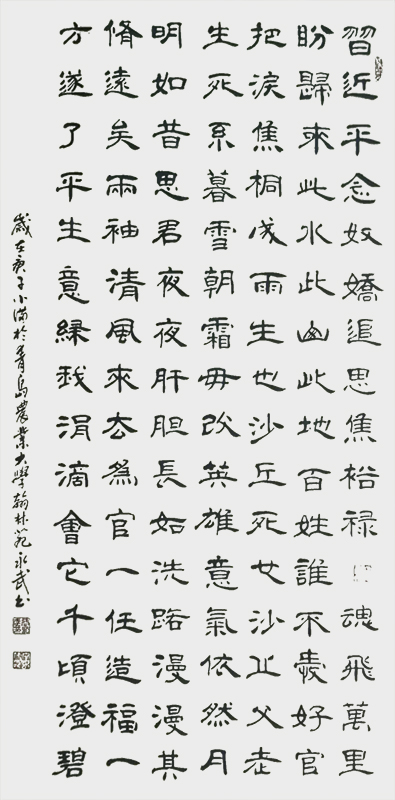 習近平念奴嬌追思焦裕禄魂飛萬里
盼歸來此水此山此地百姓誰不愛好官
把淚焦桐成雨生也沙丘死也沙丘父老
生死系暮雪朝霜毋改英雄意氣依然月
明如昔思君夜夜肝胆長如洗路漫漫其
脩遠矣兩袖清風來去為官一任造福一
方遂了平生意綠我涓滴會它千頃澄碧
歲在庚子小滿於青島農業大學翰林苑永武書